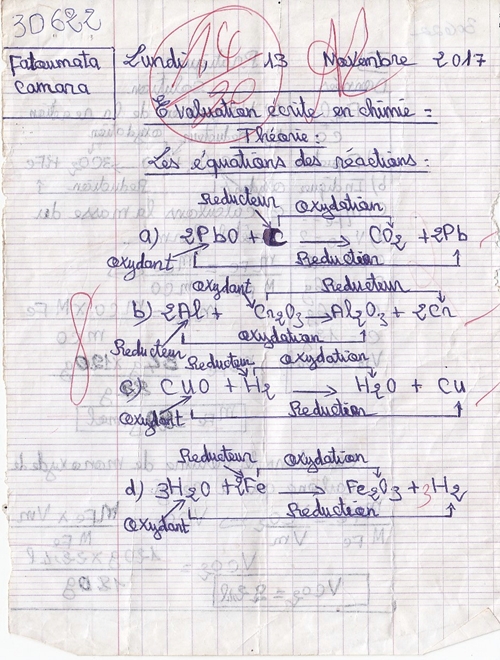 30622
Fatoumata
camara
Lundi, 13 Novembre 2017
14
20
Evaluation écrite en chimie :
Théorie :
Les équations des réactions :
Reducteur oxydation
a) 2PbO + C → CO2 + 2Pb
oxydant Reduction
oxydant Reducteur
b) 2Al + Cr2O3 → Al2O3 + 2Cr
oxydation
Reducteur
Reducteur oxydation
c) CUO + H2 → H2O + Cu
oxydant Reduction
8
Reducteur oxydation
d) 3H2O + 2Fe → Fe2O3 + 3H2
oxydant Reduction